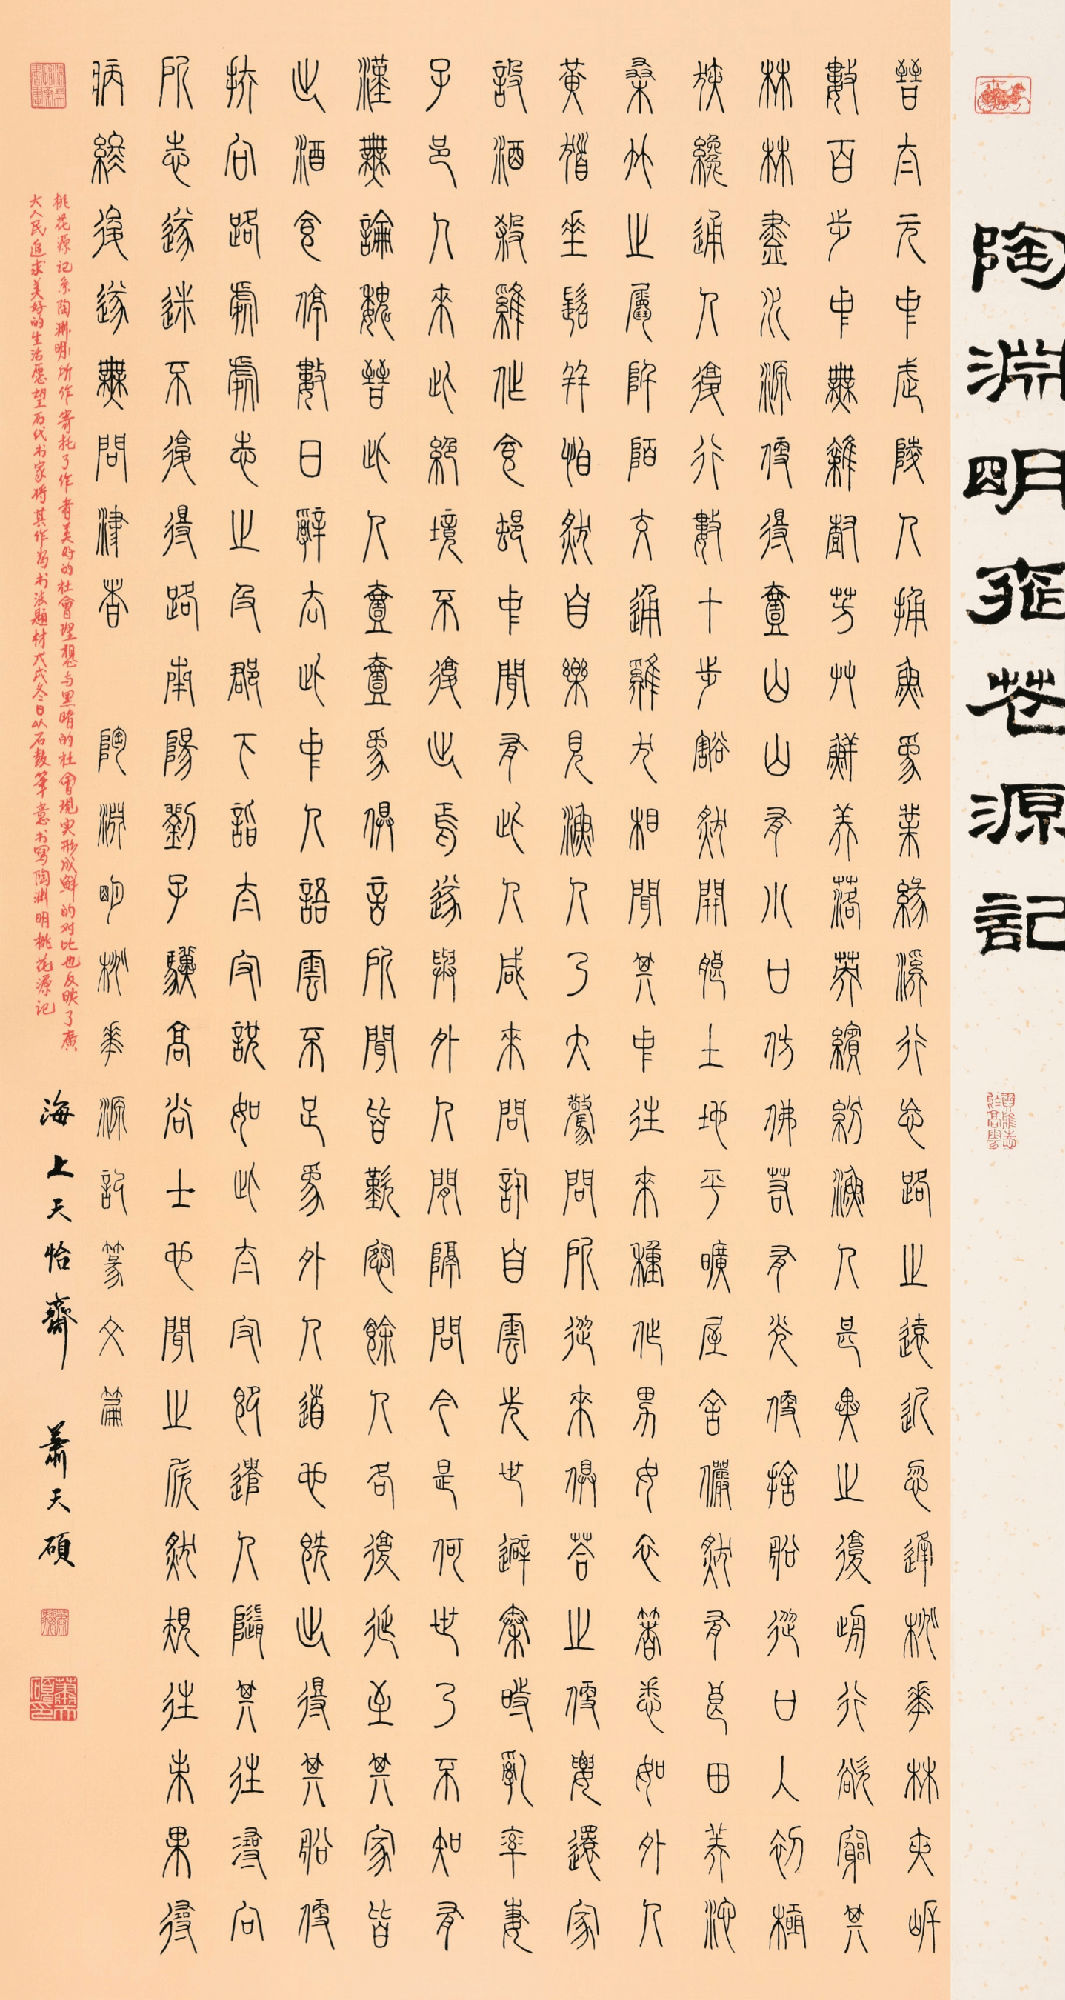 陶淵明桃花源記
晉太元中武陵人捕魚為業緣溪行忘路之遠近忽逢桃華林夾岸
數百步中無雜樹芳艸鮮美落英繽紛漁人甚異之復前行欲窮其
林林盡水源便得壹山山有小口仿佛若有光便捨船從口入初極
狹纔通人復行數十步豁然開朗土地平曠屋舍儼然有良田美池
桑竹之屬阡陌交通雞犬相聞其中往來種作男女衣著悉如外人
黃髮垂髫并怡然自樂見漁人乃大驚問所從來俱答之便要還家
設酒殺雞作食邨中聞有此人咸來問訊自雲先世避秦時亂率妻
子邑人來此絕境不復出焉遂與外人間隔問今是何世乃不知有
漢無論魏晉此人壹壹為俱言所聞皆歎惋餘人各復延至其家皆
出酒食停數日辭去此中人語雲不足為外人道也既出得其船便
扶向路處處志之及郡下詣太守說如此太守即遣人隨其往尋向
所志遂迷不復得路南陽劉子驥高尚士也聞之欣然規往未果尋
病終後遂無問津者 陶淵明桃華源記篆文篇
桃花源记系陶渊明所作寄托了作者美好的社會理想与黑暗的社會现实形成鲜的对比也反映了廣
大人民追求美好的生活愿望历代书家将其作为书法题材戊戌冬日以石鼓筆意书写陶渊明桃花源记
海上天怡齋 蕭天碩